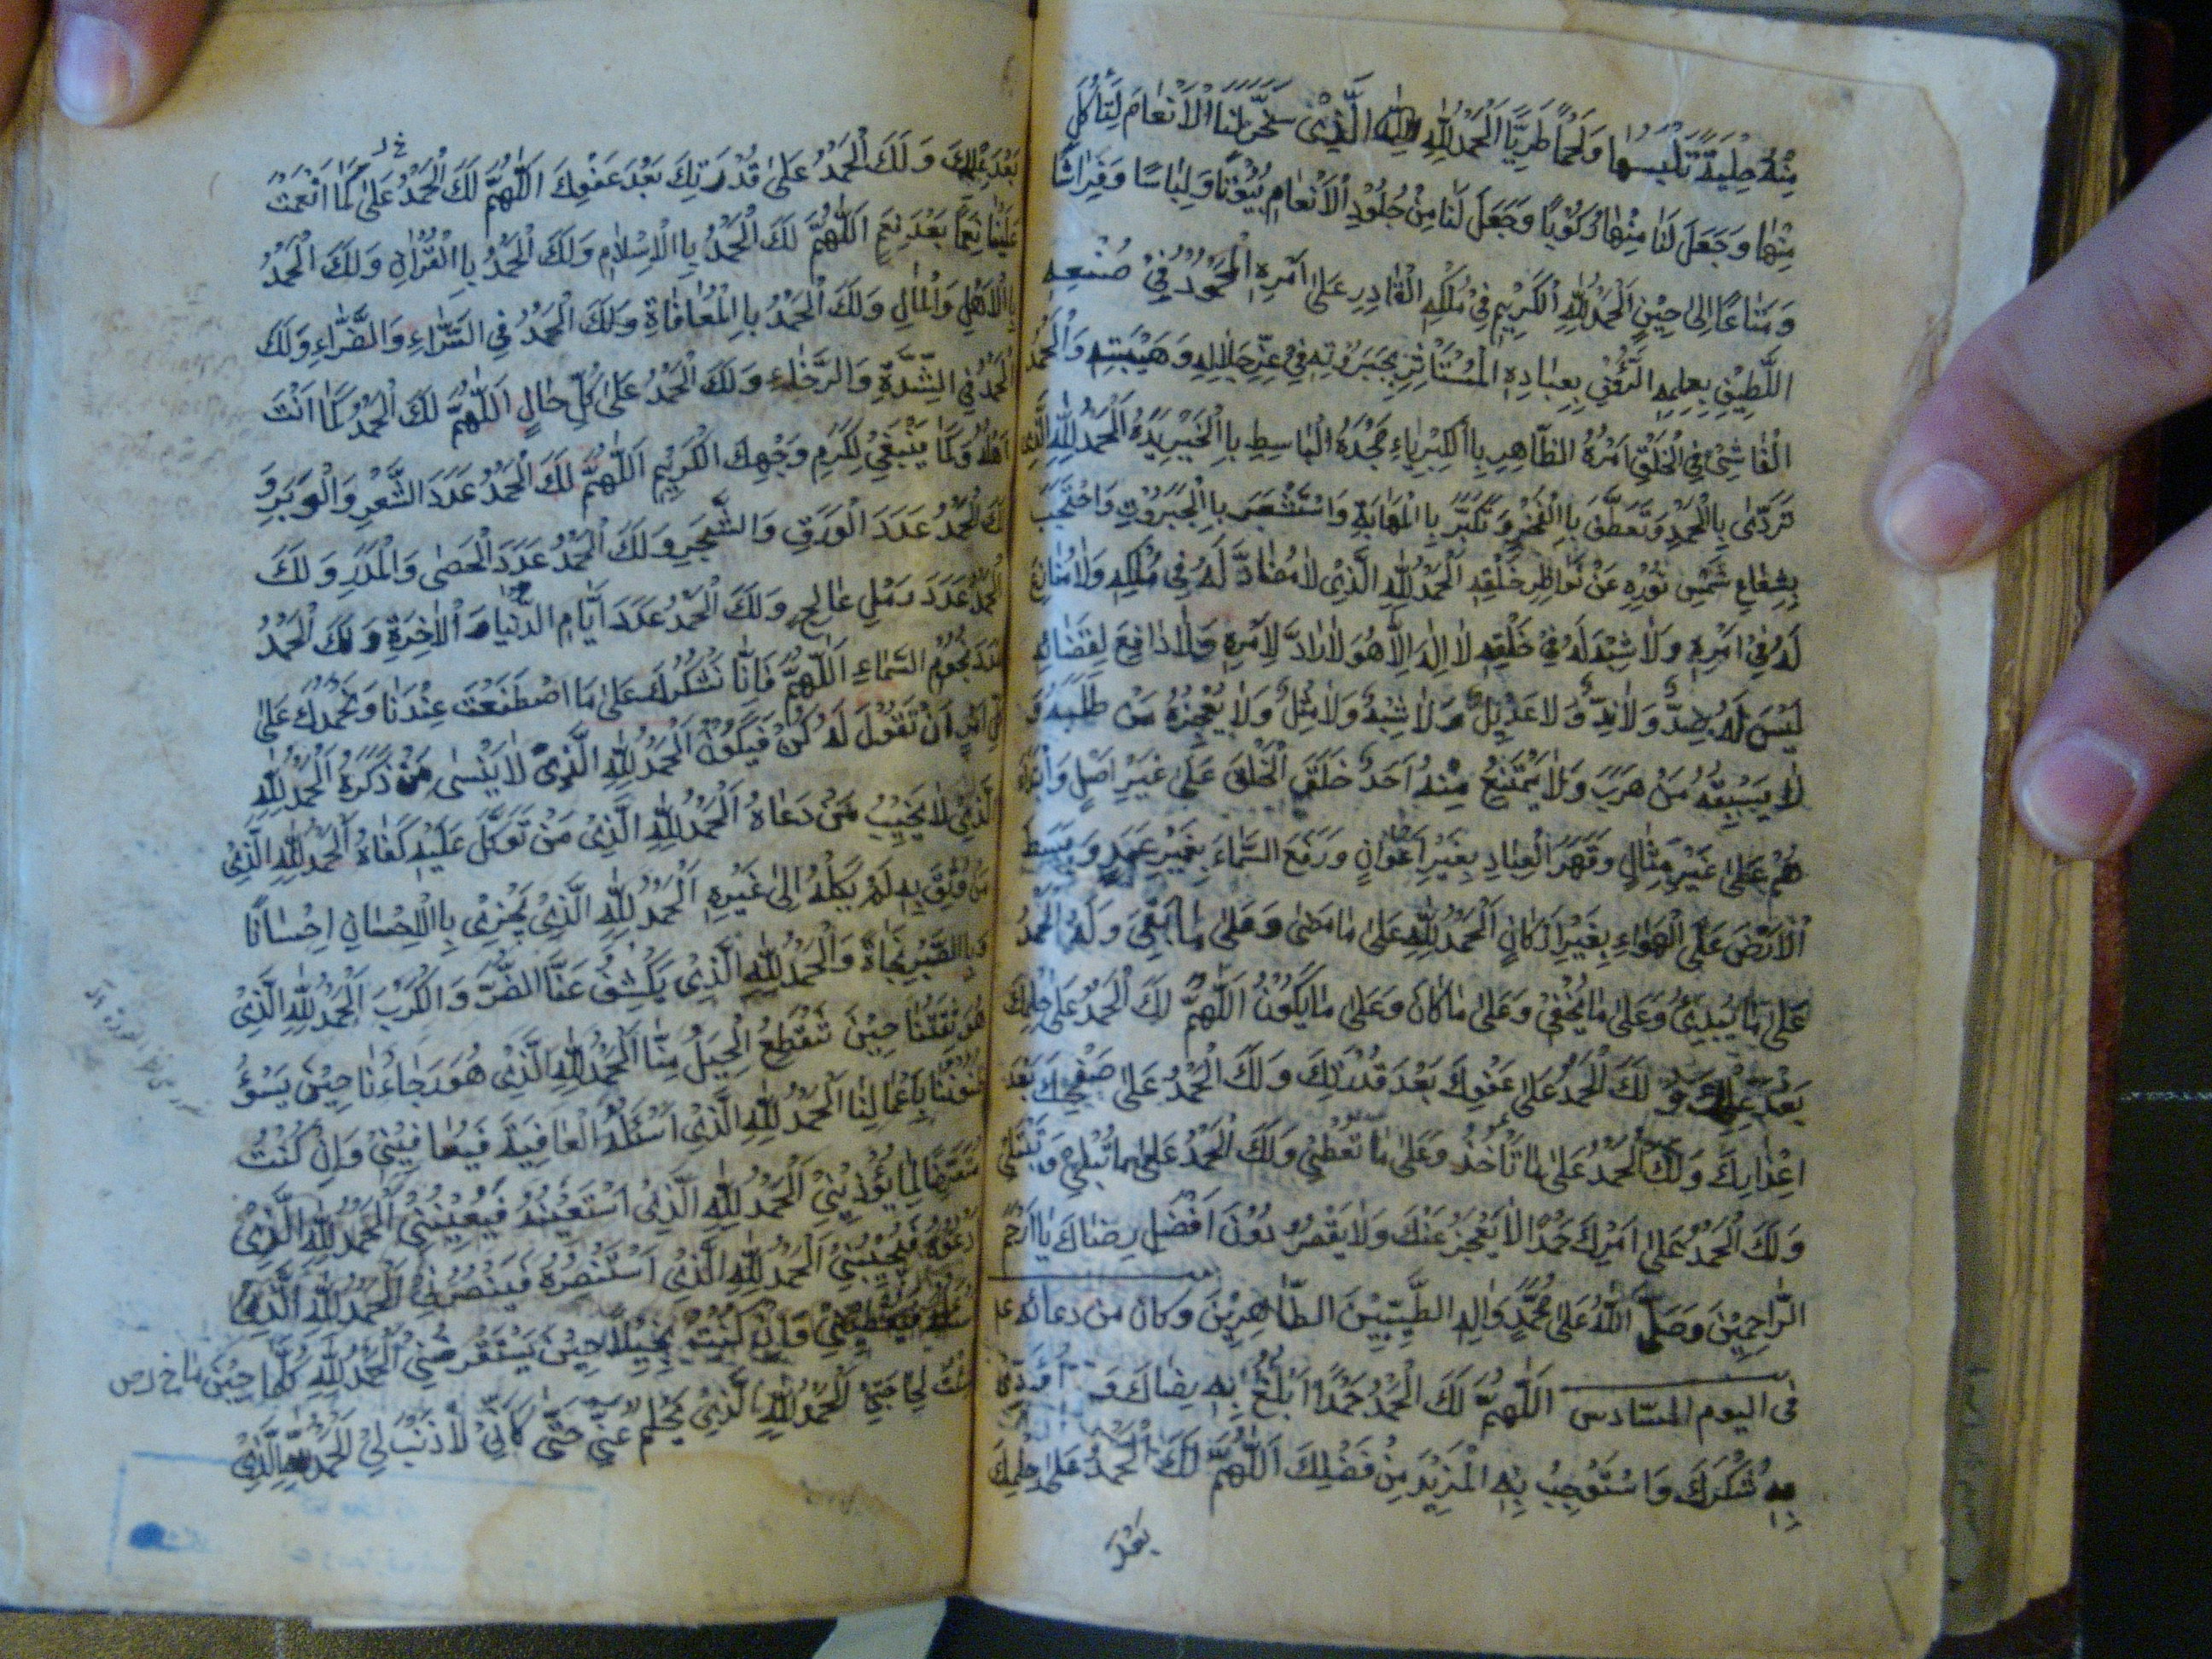 مِنْهُ حِلْيَةً تَلْبَسُوهَا وَلَحْمًا طَرِيًّا اَلْحَمْدُ لِلّٰهِ الَّذِي سَخَّرَ لَنَا الْاَنْعَامَ لِنَأْكُلَ
مِنْهَا وَجَعَلَ لَنَا مِنْهَا رُكُوبًا وَجَعَلَ لَنَا مِنْ جُلُودِ الْاَنْعَامِ بُيُوتًا وَلِبَاسًا وَفِرَاشًا
وَمَتَاعًا اِلىٰ حِيْنٍ اَلْحَمْدُ لِلّٰهِ الْكَرِيْمِ فِي مُلْكِهِ الْقَادِرِ عَلىٰ اَمْرِهِ الْمَحْمُوْدِ فِيْ صُنْعِهِ
اللَّطِيْفِ بِعِلْمِهِ الرَّؤُفِ بِعِبَادِهِ الْمُسْتَاْثِرِ بِجَبَرُوْتِهِ فِيْ عِزِّ جَلَالِهِ وَهَيْبَتِهِ وَالْحَمْدُ
الْفَاشِيْ فِي الْخَلْقِ اَمْرُهُ الظَّاهِرِ بِاالْكِبْرِيَاءِ مَجْدُهُ الْبَاسِطِ بِاالْخَيْرِ يَدَهُ اَلْحَمْدُ لِلّٰهِ الَّذِي
تَرَدّٰى بِالْحَمْدِ وَتَعَطَّفَ بِاالْفَخْرِ وَتَكَبَّرَ بِاالْمَهَابَةِ وَاسْتَشْعَرَ بِاالْجَبَرُوْتِ وَاحْتَجَبَ
بِشِعَاعِ شَمْسِ نُوْرِهِ عَنْ نَوَاظِرِ خَلْقِهِ اَلْحَمْدُ لِلّٰهِ الَّذِيْ لَا مُضَادَّ لَهُ فِي مُلْكِهِ وَلَا مُنَازِعَ
لَهُ فِيْ اَمْرِهِ وَلَا شِبْهَ لَهُ فِيْ خَلْقِهِ لَا اِلٰهَ اِلَّا هُوَ لَا رَادَّ لِاَمْرِهِ وَلَا دَافِعَ لِقَضَائِهِ
لَيْسَ لَهُ ضِدٌّ وَلَا نِدٌّ وَلَا عَدِيْلٌ وَلَا شِبْهٌ وَلَا مِثْلٌ وَلَا يُعْجِزُهُ مَنْ طَلَبَهُ وَ
لَا يَسْبِقُهُ مَنْ هَرَبَ وَلَا يَمْتَنِعُ مِنْهُ اَحَدٌ خَلَقَ الْخَلْقَ عَلىٰ غَيْرِ اَصْلٍ وَابْتَدَاَ
هُمْ عَلىٰ غَيْرِ مِثَالٍ وَقَهَرَ الْعِبَادَ بِغَيْرِ اَعْوَانٍ وَرَفَعَ السَّمَاءَ بِغَيْرِ عَمَدٍ وَبَسَطَ
الْاَرْضَ عَلَى الْهَوَاءِ بِغَيْرِ اَرْكَانٍ اَلْحَمْدُ لِلّٰهِ عَلىٰ مَا مَضىٰ وَعَلىٰ مَا بَقِيَ وَلَهُ الْحَمْدُ
عَلىٰ مَا يُبْدِيْ وَعَلىٰ مَا يُخْفِيْ وَعَلىٰ مَا كَانَ وَعَلىٰ مَا يَكُوْنُ اَللّٰهُمَّ لَكَ الْحَمْدُ عَلىٰ حِلْمِكَ
بَعْدَ عِلْمِكَ وَ لَكَ الْحَمْدُ عَلىٰ عَفْوِكَ بَعْدَ قُدْرَتِكَ وَلَكَ الْحَمْدُ عَلىٰ صَفْحِكَ بَعْدَ
اِعْذَارِكَ وَلَكَ الْحَمْدُ عَلىٰ مَا تَأْخُذُ وَعَلىٰ مَا تُعْطِيْ وَلَكَ الْحَمْدُ عَلىٰ مَا تُبْلِيْ وَتَبْتَلِيْ
وَلَكَ الْحَمْدُ عَلىٰ اَمْرِكَ حَمْدًا لَا يَعْجِزُ عَنْكَ وَلَا يَقْصُرُ دُوْنَ اَفْضَلِ رِضَاكَ يَا اَرْحَمَ
الرَّاحِمِيْنَ وَصَلَّى اللّٰهُ عَلىٰ مُحَمَّدٍ وَاٰلِهِ الطَّيِّبِيْنَ الطَّاهِرِيْنَ وكان من دعائه ع
فى اليوم السّادس اَللّٰهُمَّ لَكَ الْحَمْدُ حَمْدًا اَبْلُغُ بِهِ رِضَاكَ وَ
بِهِ شُكْرَكَ وَاسْتَوْجِبُ بِهِ الْمَزِيْدَ مِنْ فَضْلِكَ اَللّٰهُمَّ لَكَ الْحَمْدُ عَلىٰ حِلْمِكَ
بَعْدَ
بَعْدَ عِلْمِكَ وَلَكَ الْحَمْدُ عَلىٰ قُدْرَتِكَ بَعْدَ عَفْوِكَ اَللّٰهُمَّ لَكَ الْحَمْدُ عَلىٰ مَا اَنْعَمْتَ
عَلَيْنَا نِعَمًا بَعْدَ نِعَمٍ اَللّٰهُمَّ لَكَ الْحَمْدُ بِاالْاِسْلَامِ وَلَكَ الْحَمْدُ بِاالْقُرْاٰنِ وَلَكَ الْحَمْدُ
بِاالْاَهْلِ وَالْمَالِ وَلَكَ الْحَمْدُ بِاالْمُعَافَاةِ وَلَكَ الْحَمْدُ فِي السَّرَّاءِ وَالضَّرَّاءِ وَلَكَ
الْحَمْدُ فِي الشِّدَّةِ وَالرَّخَاءِ وَلَكَ الْحَمْدُ عَلىٰ كُلِّ حَالٍ اَللّٰهُمَّ لَكَ الْحَمْدُ كَمَا اَنْتَ
اَهْلُهُ وَكَمَا يَنْبَغِيْ لِكَرَمِ وَجْهِكَ الْكَرِيْمِ اَللّٰهُمَّ لَكَ الْحَمْدُ عَدَدَ الشَّعْرِ وَالْوَبَرِ وَ
لَكَ الْحَمْدُ عَدَدَ الْوَرَقِ وَالشَّجَرِ وَلَكَ الْحَمْدُ عَدَدَ الْحَصٰى وَالْمَدَرِ وَلَكَ
الْحَمْدُ عَدَدَ رَمْلِ عَالِجٍ وَلَكَ الْحَمْدُ عَدَدَ اَيَّامِ الدُّنْيَا وَالْاٰخِرَةِ وَلَكَ الْحَمْدُ
عَدَدَ نُجُوْمِ السَّمَاءِ اَللّٰهُمَّ فَاِنَّا نَشْكُرُكَ عَلىٰ مَا اصْطَنَعْتَ عِنْدَنَا وَنَحْمَدُكَ عَلىٰ
اَنْ تَقُوْلَ لَهُ كُنْ فَيَكُوْنُ اَلْحَمْدُ لِلّٰهِ الَّذِيْ لَا يَنْسٰى مَنْ ذَكَرَهُ اَلْحَمْدُ لِلّٰهِ
الَّذِيْ لَا يَخِيْبُ مَنْ دَعَاهُ اَلْحَمْدُ لِلّٰهِ الَّذِيْ مَنْ تَوَكَّلَ عَلَيْهِ كَفَاهُ اَلْحَمْدُ لِلّٰهِ الَّذِيْ
مَنْ وَثِقَ بِهِ لَمْ يَكِلْهُ اِلىٰ غَيْرِهِ اَلْحَمْدُ لِلّٰهِ الَّذِيْ يَجْزِيْ بِاالْاِحْسَانِ اِحْسَانًا
وَبِاالصَّبْرِ نَجَاةً وَالْحَمْدُ لِلّٰهِ الَّذِيْ يَكْشِفُ عَنَّا الضُّرَّ وَالْكَرْبَ اَلْحَمْدُ لِلّٰهِ الَّذِيْ
هُوَ ثِقَتُنَا حِيْنَ تَنْقَطِعُ الْحِيَلُ مِنَّا اَلْحَمْدُ لِلّٰهِ الَّذِيْ هُوَ رَجَاءُنَا حِيْنَ يَسُوْءُ
ظُنُوْنُنَا بِاَعْمَالِنَا اَلْحَمْدُ لِلّٰهِ الَّذِيْ اَسْئَلُهُ الْعَافِيَةَ فَيُعَافِيْنِيْ وَاِنْ كُنْتُ
مُتَعَرِّضًا لِمَا يُؤْذِيْنِيْ اَلْحَمْدُ لِلّٰهِ الَّذِيْ اَسْتَعِيْنُهُ فَيُعِيْنُنِيْ اَلْحَمْدُ لِلّٰهِ الَّذِيْ
اَدْعُوْهُ فَيُجِيْبُنِيْ اَلْحَمْدُ لِلّٰهِ الَّذِيْ اَسْتَنْصِرُهُ فَيَنْصُرُنِيْ اَلْحَمْدُ لِلّٰهِ الَّذِيْ
اَسْئَلُهُ فَيُعْطِيْنِيْ وَاِنْ كُنْتُ بَخِيْلًا حِيْنَ يَسْتَقْرِضُنِيْ اَلْحَمْدُ لِلّٰهِ كُلَّمَا
شِئْتُ لِحَاجَتِيْ اَلْحَمْدُ لِلّٰهِ الَّذِيْ يَحْلُمُ عَنِّيْ حَتّٰى كَاَنِّيْ لَا ذَنْبَ لِيْ اَلْحَمْدُ لِلّٰهِ الَّذِيْ